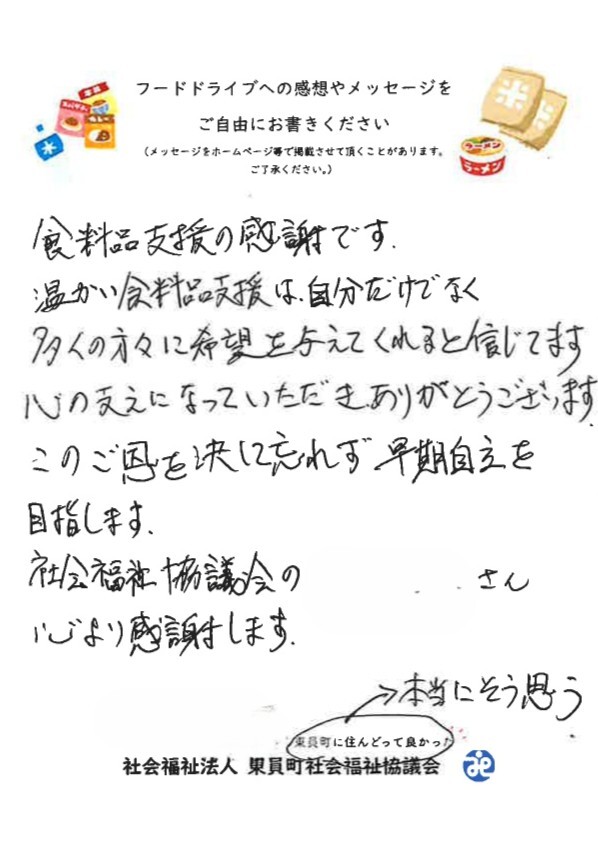 フードドライブへの感想やメッセージを
ご自由にお書きください
(メッセージをホームページ等で掲載させて頂くことがあります。
ご了承ください。)
米
ラーメン
ラーメン
食料品支援の感謝です.
温かい食料品支援は、自分だけでなく
多くの方々に希望を与えてくれると信じてます
心の支えになっていただき、ありがとうございます.
このご恩を決して忘れず早期自立を
目指します.
社会福祉協議会の さん
心より感謝します.
→本当にそう思う
東員町に住んどって良かった
社会福祉法人 東員町社会福祉協議会